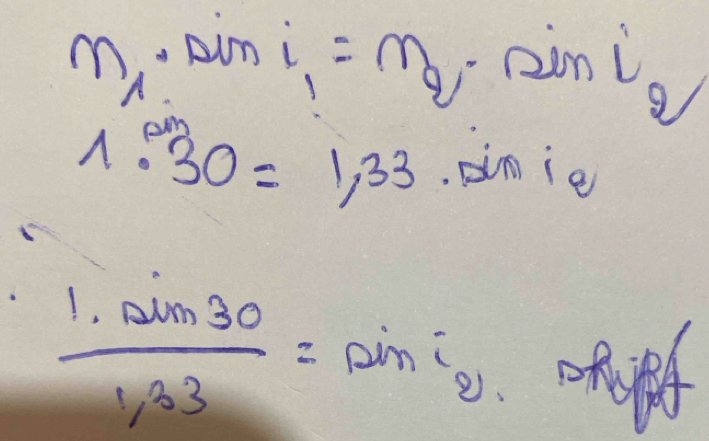 n₁ · sin i₁ = n₂ · sin i₂
1 · sin 30 = 1,33 · sin i₂
1 · sin 30 / 1,33 = sin i₂.